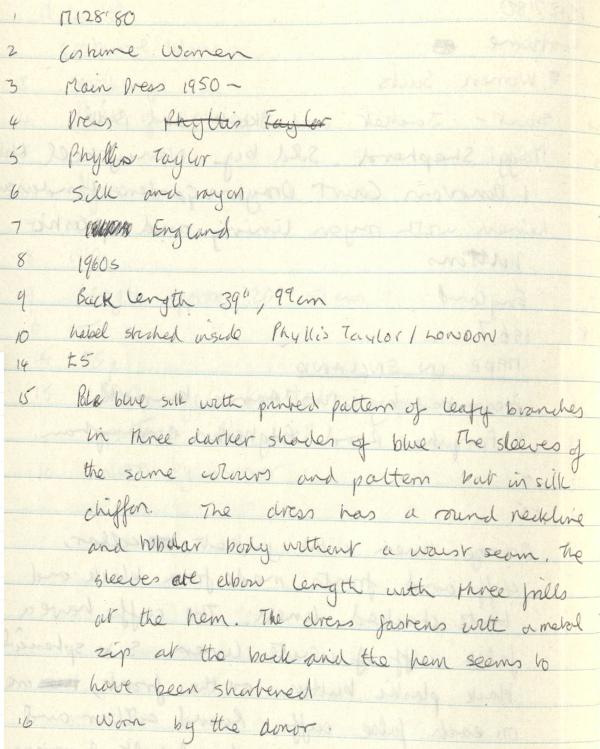 1 M128'80
2 Costume Women
3 Main Dress 1950 -
4 Dress Phyllis Taylor
5 Phyllis Taylor
6 Silk and rayon
7 England
8 1960s
9 Back Length 39", 99cm
10 Label stitched inside Phyllis Taylor / LONDON
14 £5
15 Pale blue silk with printed pattern of leafy branches
in three darker shades of blue. The sleeves of
the same colours and pattern but in silk
chiffon. The dress has a round neckline
and tubular body without a waist seam. The
sleeves are elbow length with three frills
at the hem. The dress fastens with a metal
zip at the back and the hem seems to
have been shortened
16 Worn by the donor.